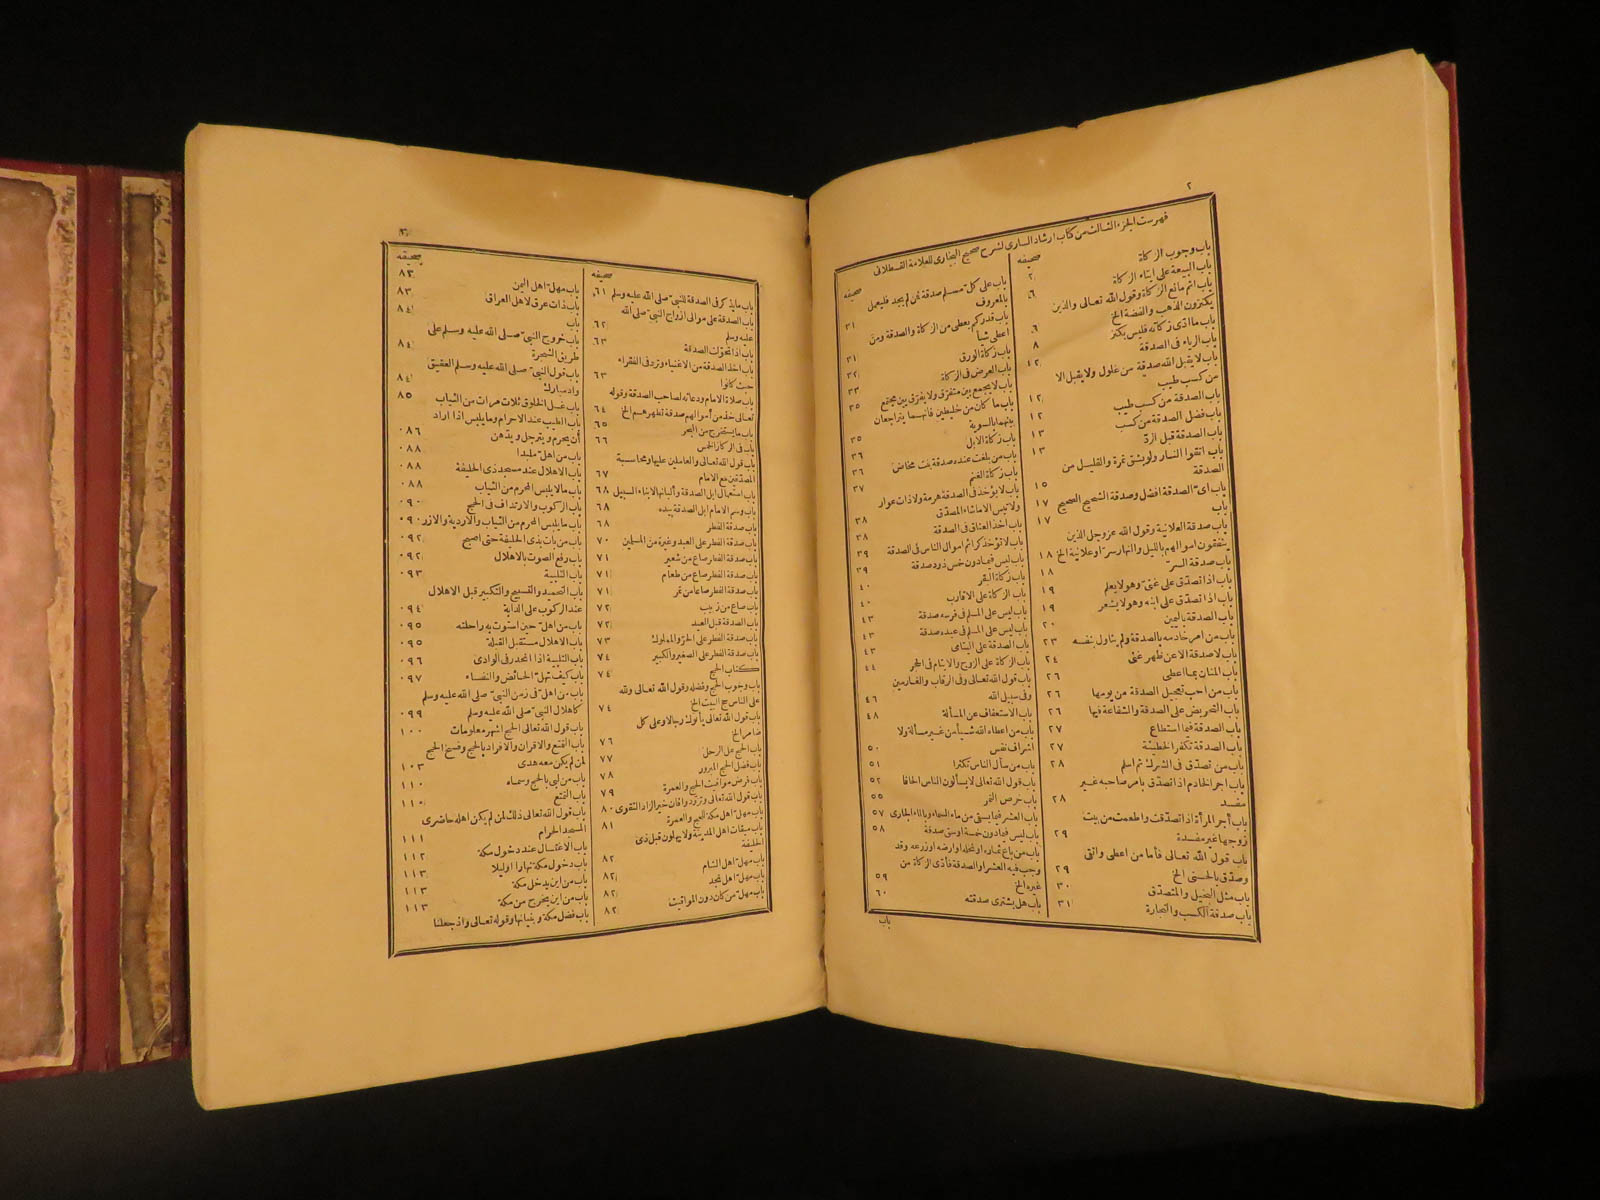 ٢
فهرست الجزء الثالث من كتاب ارشاد السارى لشرح صحيح البخارى للعلامة القسطلانى
صحيفة
باب وجوب الزكاة ٢
باب البيعة على ايتاء الزكاة ٦
باب اثم مانع الزكاة وقول الله تعالى والذين
يكنزون الذهب والفضة الخ ٦
باب ما ادّى زكاته فليس بكنز ٨
باب الرياء فى الصدقة ١٢
باب لا يقبل الله صدقة من غلول ولا يقبل الا
من كسب طيب ١٢
باب الصدقة من كسب طيب ١٢
باب فضل الصدقة من كسب
باب الصدقة قبل الردّ ١٣
باب اتقوا النار ولو بشق تمرة والقليل من
الصدقة ١٥
باب اىّ الصدقة افضل وصدقة الشحيح الصحيح ١٧
باب ١٧
باب صدقة العلانية وقول الله عز وجل الذين
ينفقون اموالهم بالليل والنهار سرّا وعلانية الخ ١٨
باب صدقة السرّ ١٨
باب اذا تصدّق على غنىّ وهو لا يعلم ١٩
باب اذا تصدّق على ابنه وهو لا يشعر ١٩
باب الصدقة باليمين ٢٠
باب من امر خادمه بالصدقة ولم يناول بنفسه ٢٣
باب لا صدقة الا عن ظهر غنى ٢٤
باب المنان بما اعطى ٢٦
باب من احب تعجيل الصدقة من يومها ٢٦
باب التحريض على الصدقة والشفاعة فيها ٢٦
باب الصدقة فيما استطاع ٢٧
باب الصدقة تكفر الخطيئة ٢٧
باب من تصدّق فى الشرك ثم اسلم ٢٨
باب اجر الخادم اذا تصدّق بامر صاحبه غير
مفسد ٢٨
باب أجر المرأة اذا تصدّقت واطعمت من بيت
زوجها غير مفسدة ٢٩
باب قول الله تعالى فأما من اعطى واتقى
وصدّق بالحسنى الخ ٢٩
باب مثل البخيل والمتصدّق ٣٠
باب صدقة الكسب والتجارة ٣١
صحيفة
باب على كل مسلم صدقة فمن لم يجد فليعمل
بالمعروف ٣١
باب قدركم يعطى من الزكاة والصدقة ومن
اعطى شاة ٣١
باب زكاة الورق ٣٢
باب العرض فى الزكاة ٣٣
باب لا يجمع بين متفرّق ولا يفرّق بين مجتمع ٣٥
باب ما كان من خليطين فانهما يتراجعان
بينهما بالسوية ٣٥
باب زكاة الابل ٣٦
باب من بلغت عنده صدقة بنت مخاض ٣٦
باب زكاة الغنم ٣٧
باب لا يؤخذ فى الصدقة هرمة ولا ذات عوار
ولا تيس الا ماشاء المصدّق ٣٨
باب أخذ العناق فى الصدقة ٣٨
باب لا تؤخذ كرائم اموال الناس فى الصدقة ٣٩
باب ليس فيما دون خمس ذود صدقة ٣٩
باب زكاة البقر ٤٠
باب الزكاة على الاقارب ٤٠
باب ليس على المسلم فى فرسه صدقة ٤٣
باب ليس على المسلم فى عبده صدقة ٤٣
باب الصدقة على اليتامى ٤٣
باب الزكاة على الزوج والايتام فى الحجر ٤٤
باب قول الله تعالى وفى الرقاب والغارمين
وفى سبيل الله ٤٦
باب الاستعفاف عن المسألة ٤٨
باب من اعطاه الله شيأ من غير مسألة ولا
اشراف نفس ٥٠
باب من سأل الناس تكثرا ٥١
باب قول الله تعالى لا يسألون الناس الحافا ٥٢
باب خرص التمر ٥٥
باب العشر فيما يسقى من ماء السماء وبالماء الجارى ٥٧
باب ليس فيما دون خمسة اوسق صدقة ٥٨
باب من باع ثماره او نخله او ارضه او زرعه وقد
وجب فيه العشر او الصدقة فأدّى الزكاة من
غيره الخ ٥٩
باب هل يشترى صدقته ٦٠
باب
٣
صحيفة
باب ما يذكر فى الصدقة للنبىّ صلى الله عليه وسلم ٦١
باب الصدقة على موالى ازواج النبىّ صلى الله
عليه وسلم ٦٢
باب اذا تحوّلت الصدقة ٦٣
باب اخذ الصدقة من الاغنياء وتردّ فى الفقراء
حيث كانوا ٦٣
باب صلاة الامام ودعائه لصاحب الصدقة وقوله
تعالى خذ من أموالهم صدقة تطهرهم الخ ٦٤
باب ما يستخرج من البحر ٦٥
باب فى الركاز الخمس ٦٦
باب قول الله تعالى والعاملين عليها ومحاسبة
المصدّقين مع الامام ٦٧
باب استعمال ابل الصدقة وألبانها لابناء السبيل ٦٨
باب وسم الامام ابل الصدقة بيده ٦٨
باب صدقة الفطر ٦٨
باب صدقة الفطر على العبد وغيره من المسلمين ٧٠
باب صدقة الفطر صاع من شعير ٧١
باب صدقة الفطر صاع من طعام ٧١
باب صدقة الفطر صاعا من تمر ٧١
باب صاع من زبيب ٧٢
باب الصدقة قبل العيد ٧٢
باب صدقة الفطر على الحرّ والمملوك ٧٣
باب صدقة الفطر على الصغير والكبير ٧٤
كتاب الحج ٧٤
باب وجوب الحج وفضله وقول الله تعالى ولله
على الناس حج البيت الخ ٧٤
باب قول الله تعالى يأتوك رجالا وعلى كل
ضامر الخ ٧٦
باب الحج على الرحل ٧٧
باب فضل الحج المبرور ٧٨
باب فرض مواقيت الحج والعمرة ٧٩
باب قول الله تعالى وتزوّدوا فان خير الزاد التقوى ٨٠
باب مهل اهل مكة للحج والعمرة ٨١
باب ميقات اهل المدينة ولا يهلون قبل ذى
الحليفة ٨٢
باب مهلّ اهل الشام ٨٢
باب مهلّ اهل نجد ٨٢
باب مهلّ من كان دون المواقيت ٨٢
صحيفة
باب مهلّ اهل اليمن ٨٣
باب ذات عرق لاهل العراق ٨٣
باب ٨٤
باب خروج النبىّ صلى الله عليه وسلم على
طريق الشجرة ٨٤
باب قول النبىّ صلى الله عليه وسلم العقيق
واد مبارك ٨٤
باب غسل الخلوق ثلاث مرات من الثياب ٨٥
باب الطيب عند الاحرام وما يلبس اذا اراد
أن يحرم ويترجل ويدّهن ٠٨٦
باب من اهلّ ملبدا ٠٨٨
باب الاهلال عند مسجد ذى الحليفة ٠٨٨
باب ما لا يلبس المحرم من الثياب ٠٨٨
باب الركوب والارتداف فى الحج ٠٩٠
باب ما يلبس المحرم من الثياب والاردية والازر ٠٩٠
باب من بات بذى الحليفة حتى اصبح ٠٩٢
باب رفع الصوت بالاهلال ٠٩٢
باب التلبية ٠٩٣
باب التحميد والتسبيح والتكبير قبل الاهلال
عند الركوب على الدابة ٠٩٤
باب من اهلّ حين استوت به راحلته ٠٩٥
باب الاهلال مستقبل القبلة ٠٩٥
باب التلبية اذا انحدر فى الوادى ٠٩٦
باب كيف تهلّ الحائض والنفساء ٠٩٧
باب من اهلّ فى زمن النبىّ صلى الله عليه وسلم
كاهلال النبىّ صلى الله عليه وسلم ٠٩٩
باب قول الله تعالى الحج اشهر معلومات ١٠٠
باب التمتع والاقران والافراد بالحج وفسخ الحج
لمن لم يكن معه هدى ١٠٣
باب من لبى بالحج وسماه ١١٠
باب التمتع ١١٠
باب قول الله تعالى ذلك لمن لم يكن اهله حاضرى
المسجد الحرام ١١١
باب الاغتسال عند دخول مكة ١١٢
باب دخول مكة نهارا او ليلا ١١٣
باب من اين يدخل مكة ١١٣
باب من اين يخرج من مكة ١١٣
باب فضل مكة وبنيانها وقوله تعالى واذ جعلنا